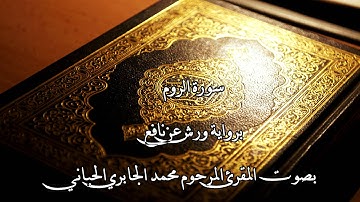 سورة الروم
برواية ورش عن نافع
بصوت المقرئ المرحوم محمد الجابري الحياني